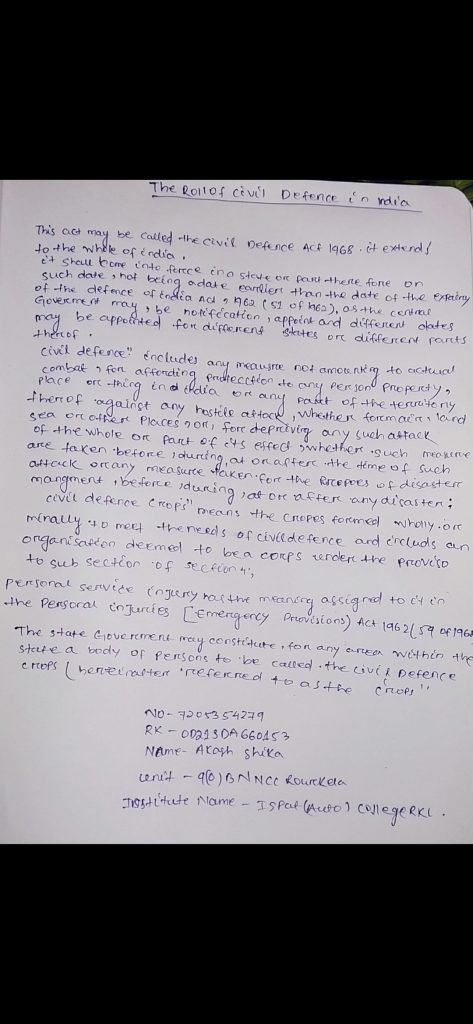 The Roll of civil Defence in ndia
This act may be called the civil Defence Act 1968. it extends
to the whole of india.
it shall come into force in a state or part there fore on
such date, not being a date earlier than the date of the expiriny
of the defence of India Act, 1962 (51 of 1962), as the central
Goverment may, be notification, appoint and different dates
may be appointed for different states or different parts
therof.
civil defence" includes any measurre not amounting to actual
combat, for affording protecction to any person, property,
place or thing in d india or any part of the territoriy
therof against any hostile attack, whether form air, land
sea or other places, or, for depriving any such attack
of the whole or part of its effect, whether such measure
are taken before, during, at or after the time of such
attack or any measure taken for the porpoes of disaster
mangment, before, during, at or after any disaster;
civil defence crops" means the cropes formed wholly or
minally to meet the needs of civil defence and includs an
organisation deemed to be a corps under the proviso
to sub section of section 4;
personal service injury has the meaning assigned to it in
the Personal injuries [Emergency Provisions) Act 1962 (59 of 196
The state Goverment may constitute, for any area within the
state a body of persons to be called the civil Defence
crops (hereinafter rreferred to as the crops"
NO - 7205354279
RK - OD21SDA660153
Name - Akash Shika
unit - 9(O) BN NCC Rourkela
Institute Name - Ispat (Auto) college RKL.